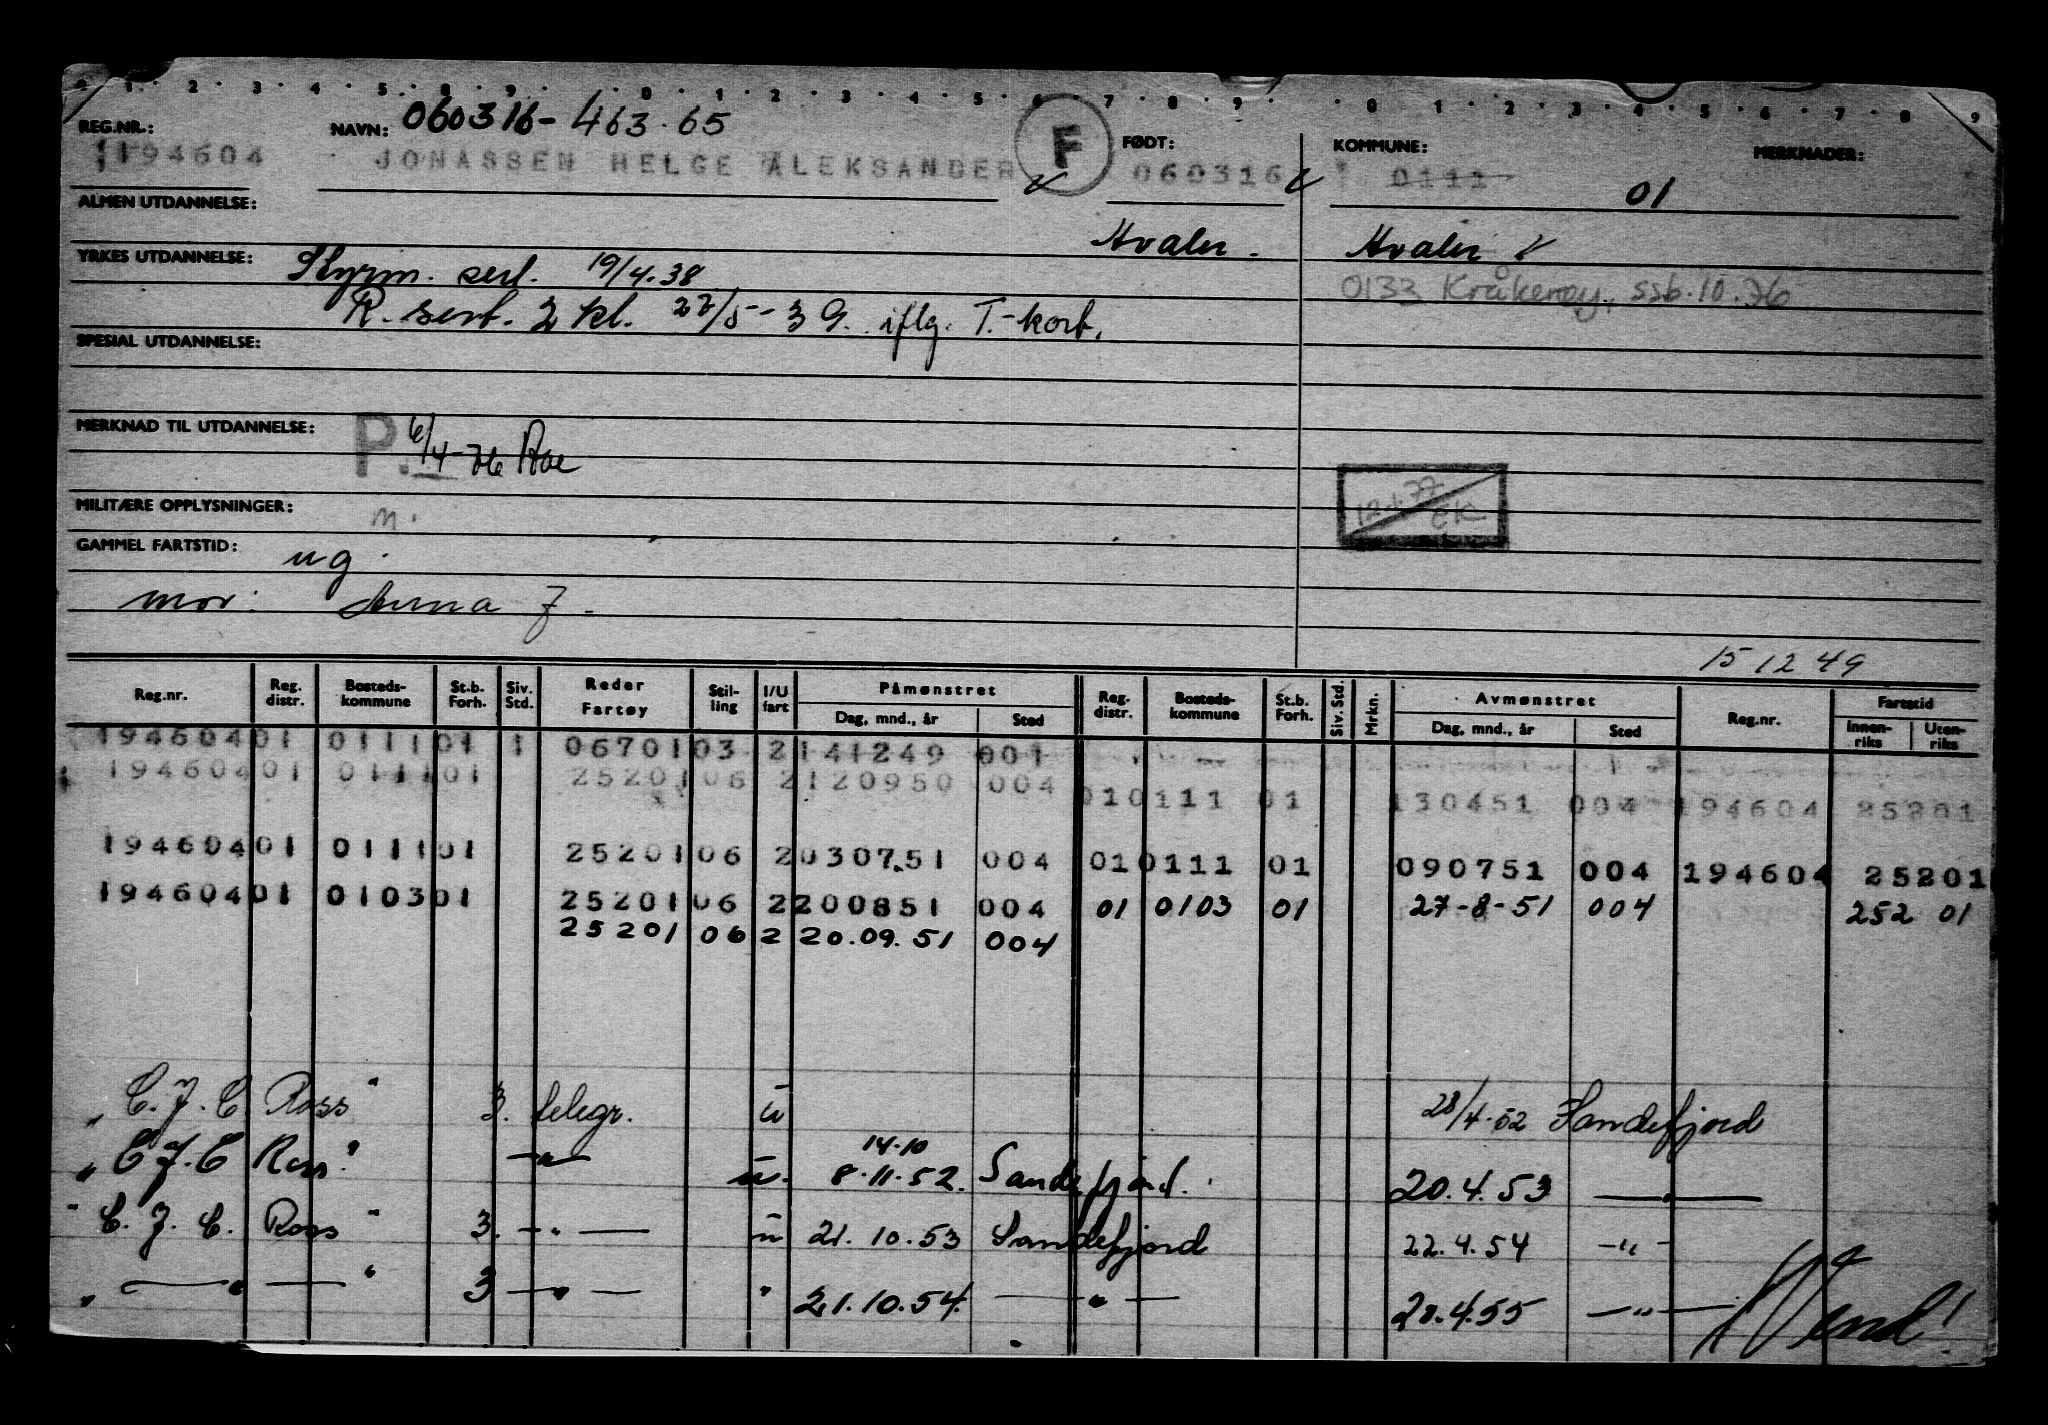 1 · 2 · 3 · 4 · 5 · 8 · 9 · 0 · 1 · 2 · 3 · 4 · 5 · 6 · 7 · 8 · 9 · 0 · 1 · 2 · 3 · 4 · 5 · 6 · 7 · 8 · 9
REG.NR.: NAVN: 060316-463.65 F FØDT: KOMMUNE: MERKNADER:
194604 JONASSEN HELGE ALEKSANDER 060316 0111
01
ALMEN UTDANNELSE:
Hvaler. Hvaler
YRKES UTDANNELSE: Styrm. sert. 19/4.38
0133 Kråkerøy, ssb. 10.76
R. sert. 2 kl. 22/5-39. iflg. T.-kort.
SPESIAL UTDANNELSE:
MERKNAD TIL UTDANNELSE: P. 6/4-76
12.1.77
MILITÆRE OPPLYSNINGER: M.
GAMMEL FARTSTID: ug.
mor: Anna J.
15 12 49
Reg.nr. Reg. distr. Bosteds-kommune St.b. Forh. Siv. Std. Reder Fartøy Stil-ling I/U fart Påmønstret Dag, mnd., år Sted Reg. distr. Bosteds-kommune St.b. Forh. Siv. Std. Mrkn. Avmønstret Dag, mnd., år Sted Reg.nr. Fartstid Innen-riks Uten-riks
194604 01 0111 01 1 06701 03 2 141249 001
194604 01 0111 01 25201 06 2 120950 004 01 0111 01 130451 004 194604 25201
194604 01 0111 01 25201 06 2 030751 004 01 0111 01 090751 004 194604 25201
194604 01 0103 01 25201 06 2 200851 004 01 0103 01 27-8-51 004 252 01
25201 06 2 20.09.51 004
„ C. J. C. Ross " 3. telegr. u 28/4.52 Sandefjord
14.10
„ C J. C Ross." —"— u. 8.11.52. Sandefjord. 20.4.53 —"—
" C. J. C. Ross " 3. —"— u 21.10.53 Sandefjord 22.4.54 —"—
„ —"— " 3 —"— " 21.10.54. —"— 20.4.55 —"—
Vend!